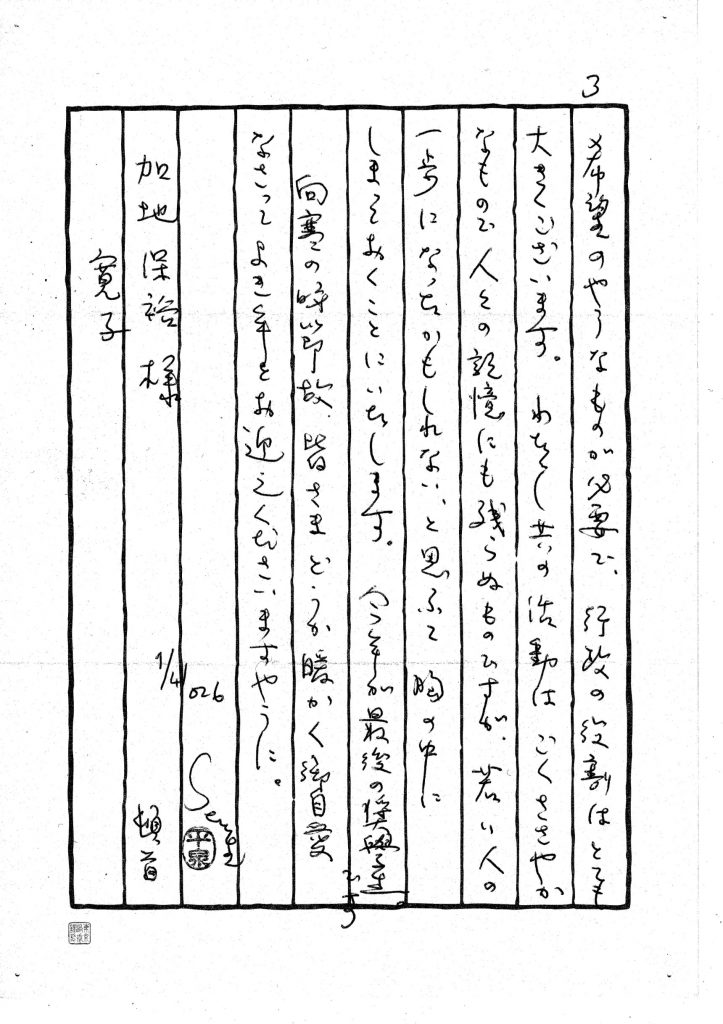 3
希望のやうなものが必要で、行政の役割はとても
大きくございます。わたし共の活動はごくささやか
なもので人々の記憶にも残らぬものですが、若い人の
一歩になったかもしれない、と思ふて胸の中に
しまっておくことにいたします。今年が最後の奨学生です
向寒の時節故、皆さまどうか暖かく御自愛
なさってよき年をお迎えくださいますやうに。
頓首
平泉
加地保裕様
寛子